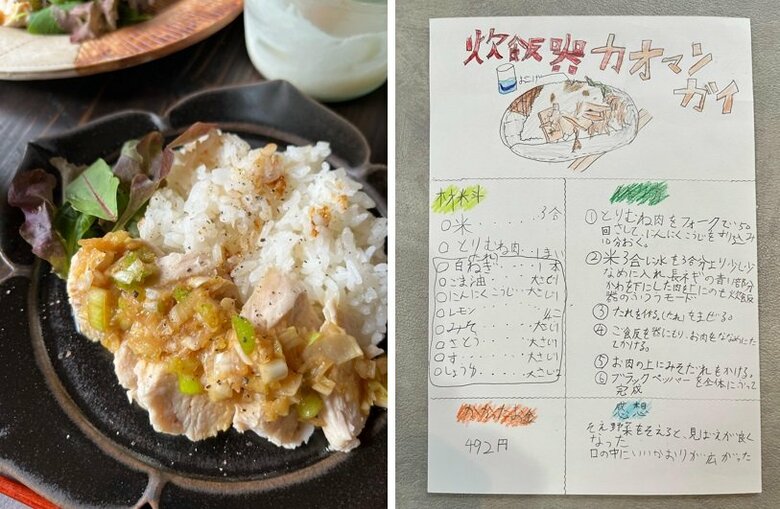 炊飯器カオマンガイ
材料
□米・・・・・3合
□とりむね肉・・・1まい
たれ
□白ねぎ・・・・1本
□ごま油・・・大さじ
□にんにくこうじ・大さじ
□レモン・・・・
□みそ・・・・大さじ
□さとう・・・大さじ
□す・・・・・大さじ
□しょうゆ・・・大さじ
①とりむね肉をフォークで50
回さして、にんにくこうじをすり込み
10分おく。
②米3合に水を3合分より少し少
なめに入れ、長ネギの青い部分
かわを下にした肉
器のふつうモード
③たれを作る。(たれ)をまぜる。
④ご飯を器にもり、お肉をななめにた
てかける。
⑤お肉の上にみそだれもかける。
⑥ブラックペッパーを全体に
完成
かかったお金
492円
感想
そえ野菜をそえると、見ばえが良く
なった
口の中にいいかおりが広がった